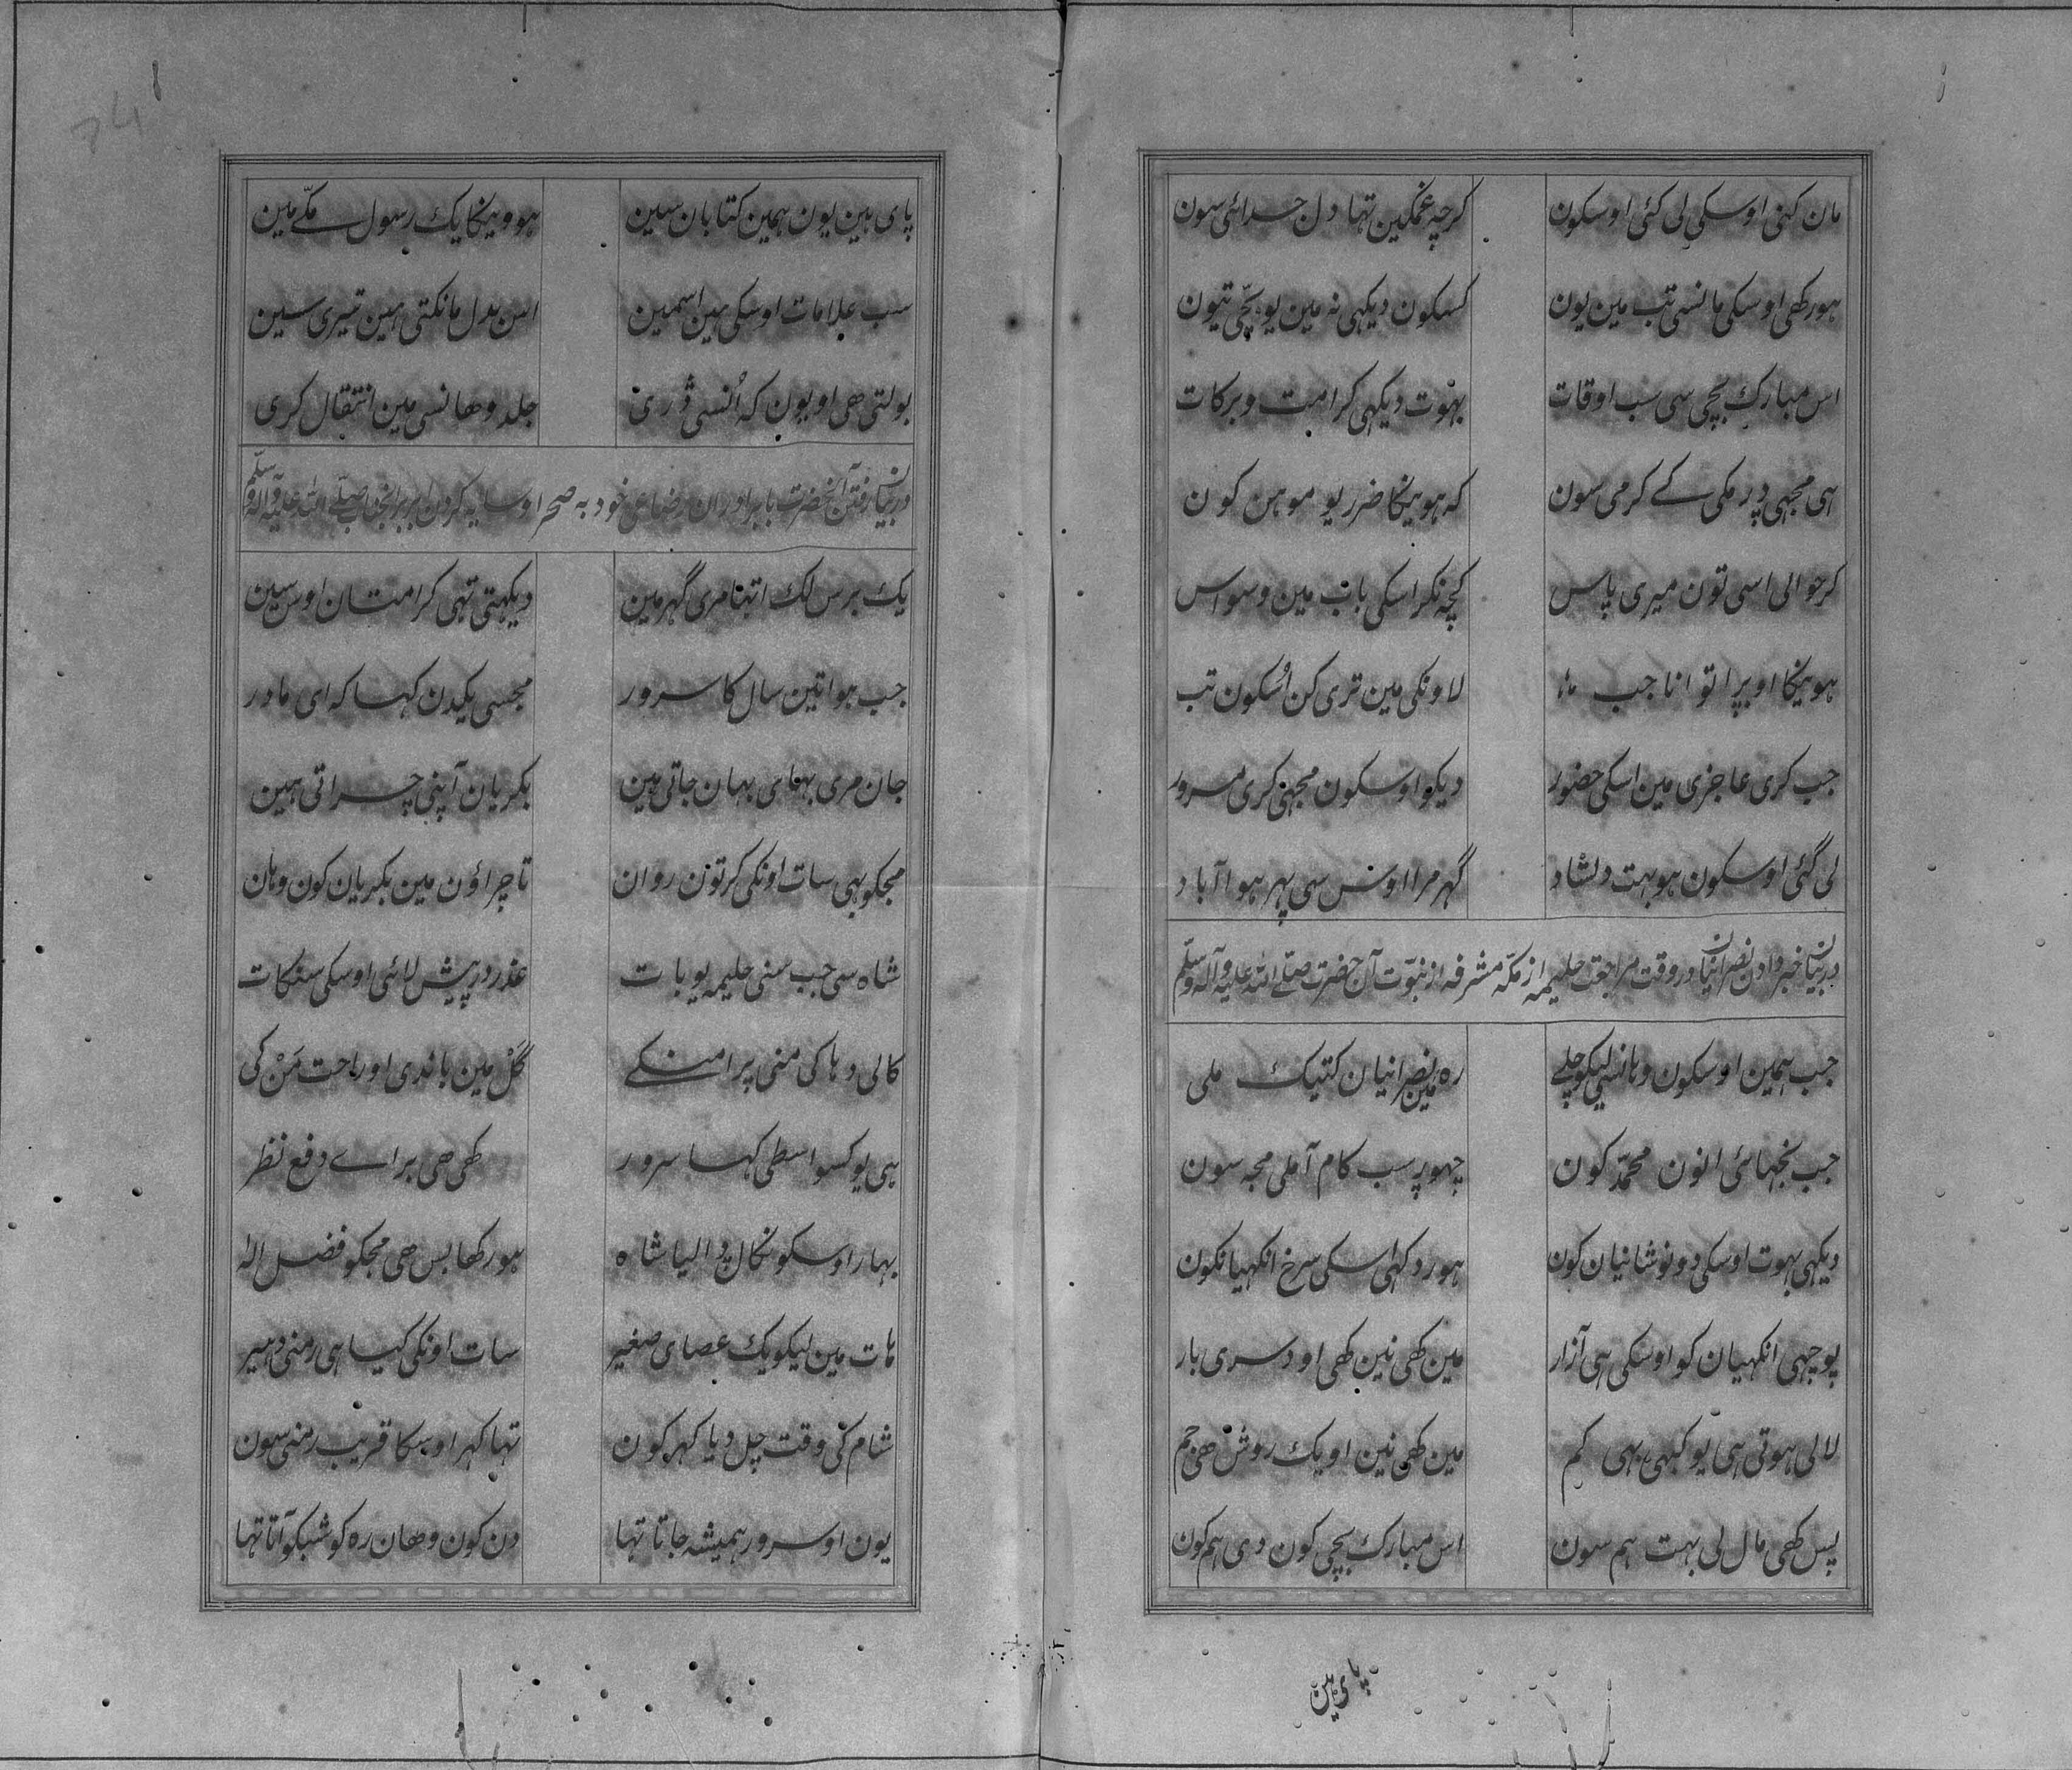 مان کنی اوسکی لی کئی اوسکون گرچه غمگین تها دل جدائی سون
هور کهی اوسکی مانسی تب مین یون کسکون دیکهی نه مین یو بچّی تیون
اس مبارک بچّی سی سب اوقات بهوت دیکهی کرامت و برکات
هی مجهی ڈر مکی کے گرمی سون که هوینگا ضرر یو موهن کون
کر حوالی اسی تون میری پاس کچه نکر اسکی باب مین وسواس
هوینگا او بڑا توانا جب لاونگی مین تری کن اُسکون تب
جب کری عاجزی مین اسکی حضور دیکو اوسکون مجهی کری مسرور
لی گئی اوسکون هو بهت دلشاد گهر مرا اونس سی پهر هوا آباد
در بیان خبر دادن نصرانیان در وقت مراجعت حلیمه از مکّه مشرفه از نبوّت آن حضرت صلّے الله علیه وآله وسلّم
جب همین اوسکون وهانسی لیکو چلے ره مین نصرانیان کتیک ملی
جب نجهائی انون محمّد کون چهوڑ سب کام آملی مجه سون
دیکهی بهوت اوسکی دو نو شانیان کون هور دکهی اسکی سرخ انکهیانکون
پوچهی انکهیان کو اوسکی هی آزار مین کهی نین کهی او دسری بار
لالی هوتی هی یو کبهی بهی کم مین کهی نین او یک روش هی جم
پس کهی مال لی بهت هم سون اس مبارک بچّی کون دی هم کون
پای هین
پای هین یون همین کتابان سین هووینگا یک رسول مکّے مین
سب علامات اوسکی هین اسمین اس بدل مانکتی هین تیری سین
بولتی هی او یون که اُنسی ڈری جلد وهانسی مین انتقال کری
در بیان رفتن آنحضرت با برادران رضاعی خود به صحرا و سایه کردن ابر بر آنجناب صلّے الله علیه وآله وسلّم
یک برس لک اتها مری گهر مین دیکهتی تهی کرامتان اوس سین
جب هوا تین سال کا سرور مجسی یکدن کها که ای مادر
جان مری بهائی بهان جاتی هین بکریان آپنی چراتی هین
مجکو بهی سات اونکی کر تون روان تا چراؤن مین بکریان کون وهان
شاه سی جب سنی حلیمه یو بات عذر درپیش لائی اوسکی سنکات
کالی دهاکی منی پرا منکے گل مین باندی او راحت مَنْ کی
هی یو کسواسطی کها سرور کهی هی براے دفع نظر
بهار اوسکو نکال ڈالیا شاه هور کها بس هی مجکو فضل اله
هات مین لیکو یک عصای صغیر سات اونکی گیا هی رمنی دهیر
شام کی وقت چل دیا گهر کون تها گهر اوسکا قریب رمنی سون
یون او سرور همیشه جاتا تها دن کون وهان ره کو شبکو آتا تها